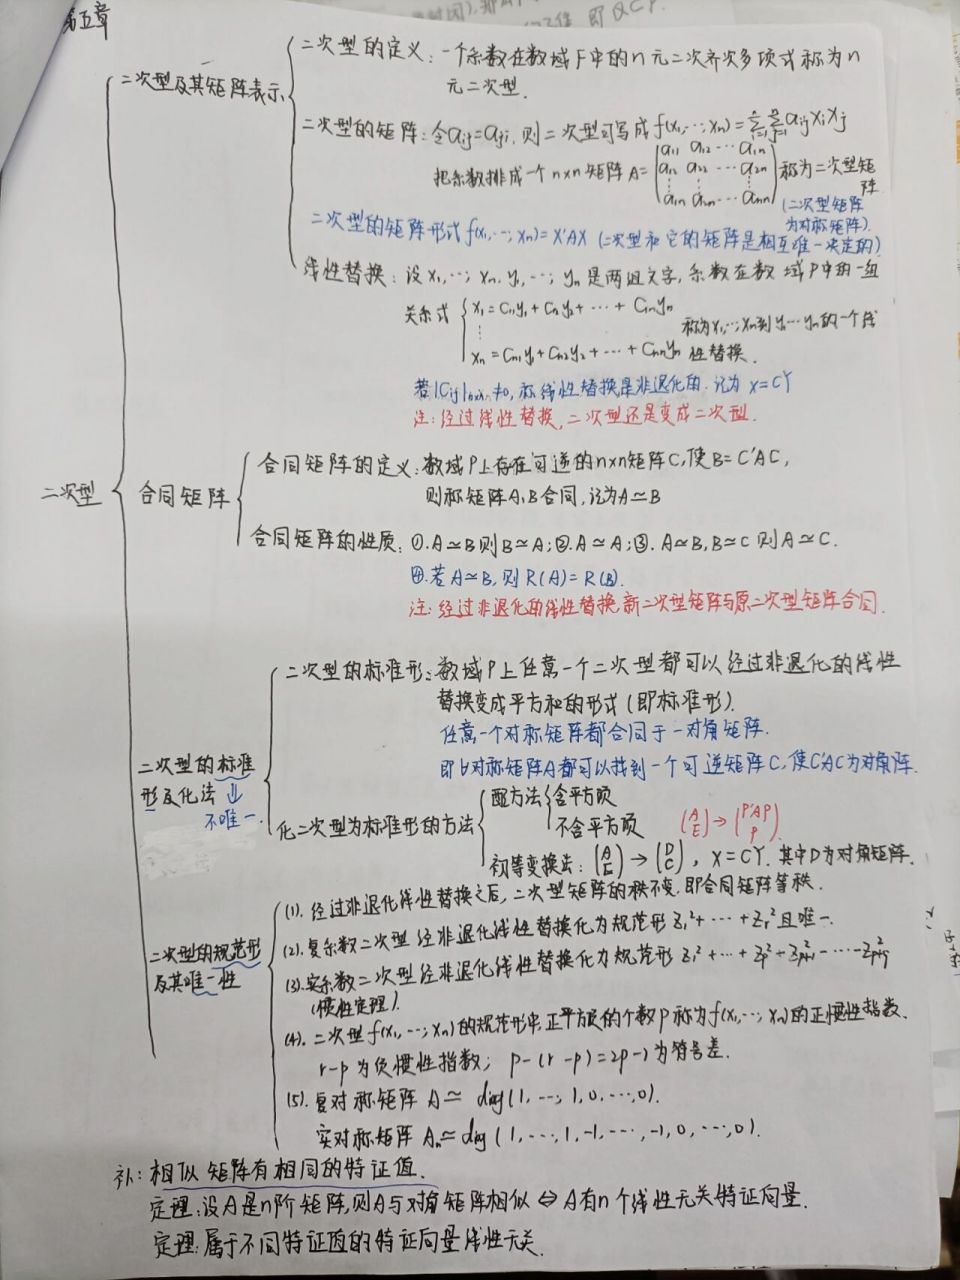 第五章
二次型
二次型及其矩阵表示
二次型的定义:一个系数在数域F中的n元二次齐次多项式称为n
元二次型.
二次型的矩阵:令aij=aji,则二次型可写成f(x₁,…,xn)=ΣΣaijxixj
把系数排成一个n×n矩阵A=(a11 a12 … a1n
a12 a22 … a2n
a1n a2n … ann)称为二次型矩
阵
(二次型矩阵
为对称矩阵).
二次型的矩阵形式f(x₁,…,xn)=X'AX(二次型和它的矩阵是相互唯一决定的)
线性替换:设x₁,…,xn,y₁,…,yn是两组文字,系数在数域P中的一组
关系式 x₁=C11y₁+C12y₂+…+C1nyn
⋮
xn=Cn1y₁+Cn2y₂+…+Cnnyn
称为x₁,…,xn到y₁…yn的一个线
性替换.
若|Cij|n×n≠0,称线性替换是非退化的.记为X=CY
注:经过线性替换,二次型还是变成二次型.
合同矩阵
合同矩阵的定义:数域P上存在可逆的n×n矩阵C,使B=C'AC,
则称矩阵A、B合同,记为A≃B
合同矩阵的性质:①.A≃B则B≃A;②.A≃A;③.A≃B,B≃C则A≃C.
④.若A≃B,则R(A)=R(B).
注:经过非退化的线性替换,新二次型矩阵与原二次型矩阵合同.
二次型的标准
形及化法
不唯一.
二次型的标准形:数域P上任意一个二次型都可以经过非退化的线性
替换变成平方和的形式(即标准形).
任意一个对称矩阵都合同于一对角矩阵.
即∀对称矩阵A都可以找到一个可逆矩阵C,使C'AC为对角阵.
化二次型为标准形的方法
配方法 含平方项
不含平方项
(A E)→(P'AP P)
初等变换法:(A E)→(D C),X=CY.其中D为对角矩阵.
二次型的规范形
及其唯一性
(1).经过非退化线性替换之后,二次型矩阵的秩不变.即合同矩阵等秩.
(2).复系数二次型经非退化线性替换化为规范形z₁²+…+zr²且唯一.
(3).实系数二次型经非退化线性替换化为规范形z₁²+…+zp²-zp+1²-…-zp+q²
(惯性定理).
(4).二次型f(x₁,…,xn)的规范形中,正平方项的个数P称为f(x₁,…,xn)的正惯性指数.
r-p为负惯性指数;p-(r-p)=2p-r为符号差.
(5).复对称矩阵A≃diag(1,…,1,0,…,0).
实对称矩阵An≃diag(1,…,1,-1,…,-1,0,…,0).
补:相似矩阵有相同的特征值.
定理:设A是n阶矩阵,则A与对角矩阵相似⇔A有n个线性无关特征向量.
定理:属于不同特征值的特征向量线性无关.